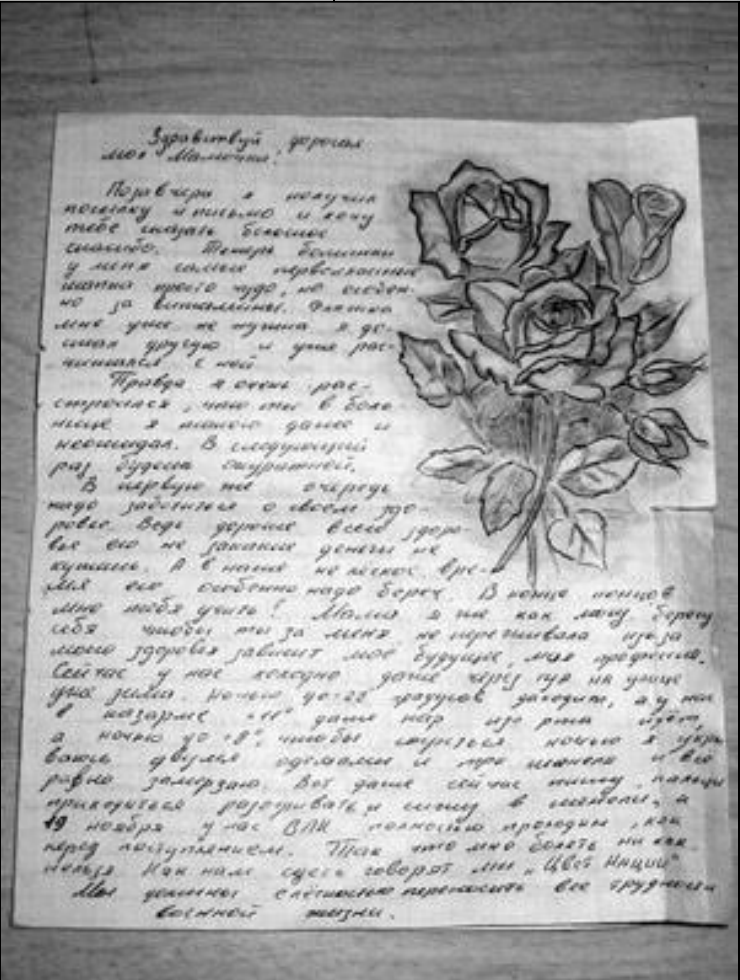 Здравствуй дорогая
моя Мамочка!
Позавчера я получил
посылку и письмо и хочу
тебе сказать большое
спасибо. Теперь ботинки
у меня самые первоклассные
шапка просто чудо, но особен-
но за витамины.
мне уже не нужна я до-
стал другую и уже рас-
с ней
Правда я очень рас-
строился, что ты в боль-
нице я такого даже и
неожидал. В следующий
раз будешь аккуратней.
В первую же очередь
надо заботиться о своем здо-
ровье. Ведь дороже всего здоро-
вье его не за деньги не
купишь. А в наше не время
его особенно надо беречь. В конце концов
мне тебя учить! Мама я как могу берегу
себя чтобы ты за меня не переживала из за
моего здоровья зависит моё будущее, моя профессия.
Сейчас у нас холодно даже на улице
зима. Ночью до -22 градусов доходит, а у нас
в казарме +11° даже пар изо рта идёт,
а ночью до +8°, чтобы согреться ночью я укры
ваюсь двумя одеялами и шинель и все
равно замерзаю. Вот даже сейчас пишу, пальцы
приходиться разогревать и сижу в шинели, а
19 ноября у нас ВЛК полностью проходим, как
перед поступлением. Так что мне болеть ни как
нельзя. Как нам здесь говорят мы „Цвет Нации"
Мы должны с лёгкостью переносить все трудности
военной жизни.